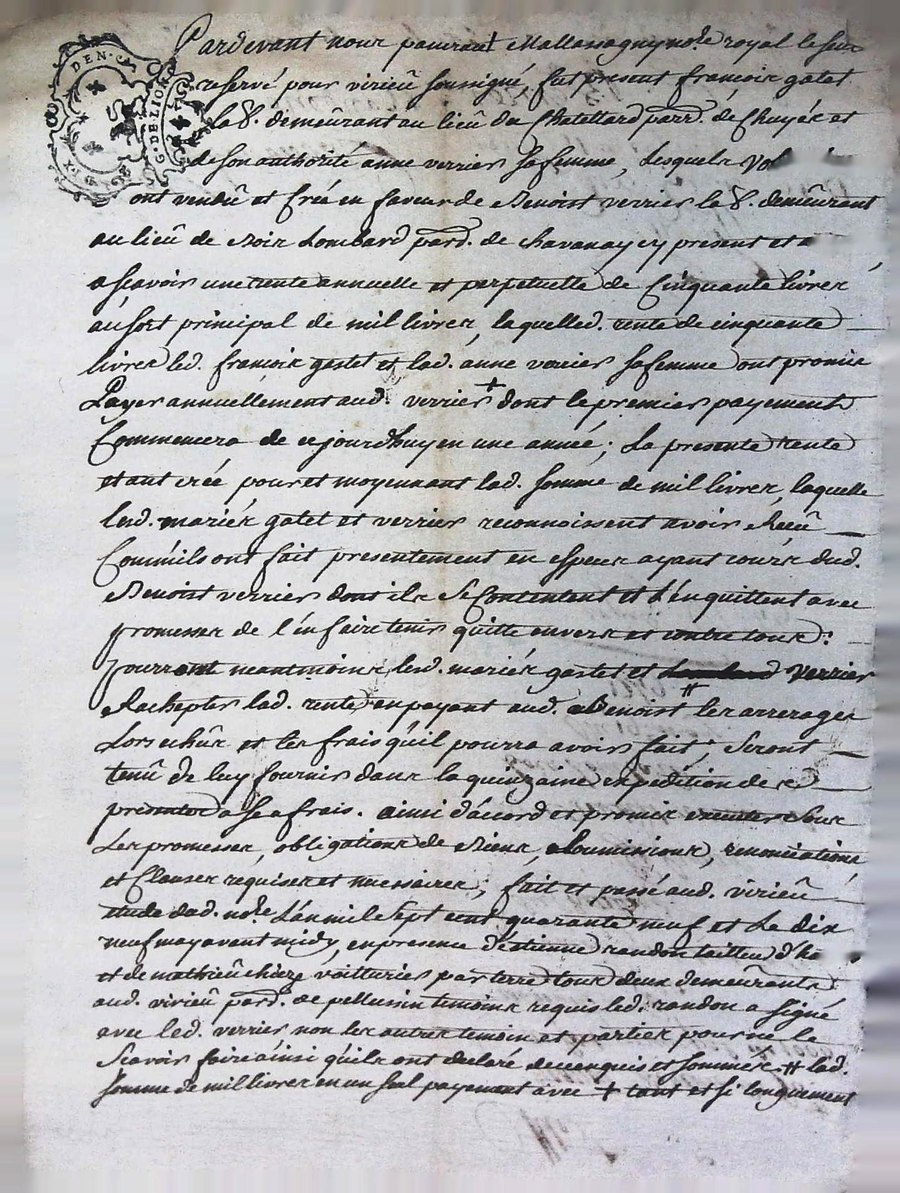 DEN. CT
G. DE LION
Pardevant nous pourvant Mallassagny no.re royal le seul
reservé pour virieü soussigné, fut present françois gatet
la.r demeürant au lieü du Chatellard parr. de Chuyér et
de son authorité anne verrier sa femme, lesquels vol
ont vendü et créé en faveur de Benoist verrier la.r demeürant
au lieü de Noir Lombard parr. de chavanay cy present et a
a scavoir une rente annuelle et perpetuelle de Cinquante livres
au sort principal de mil livres, laquelle d. rente de cinquante
livres led. françois gastet et lad. anne verrier sa femme ont promis
Payer annuellement aud. verrier + dont le premier payement
Commencera de cejourdhuy en une année; La presente rente
etant créé pour et moyennant lad. somme de mil livres, laquelle
lesd. mariér gatet et verrier reconnoissent avoir Receü
Comm'ils ont fait presentement en especes ayant cours dud.
Benoist verrier dont ils se Contentent et l'en quittent avec
promesses de l'en faire tenir quitte envers et contre tous:
pourront neantmoins lesd. mariér gastet et verrier
Rachepter lad. rente en payant aud. Benoist # les arrerages
Lors echûs et les frais qu'il pourra avoir fait. Seront
tenû de luy fournir dans la quinzaine expedition de ce
presentes a ses frais. ainsi d'accord et promis sous
Les promesses, obligations de Biens, soumissions, renonciations
et Clauses requises et necessaires; fait et passé aud. virieü
etude dud. no.re L'an mil sept cent quarante neuf et Le dix
neuf may avant midy, en presence d'etienne randon tailleur d'ha
et de mathieü chieze voiturier par terre tous deux demeürants
aud. virieü parr. de pellussin temoins requis led. randon a signé
avec led. verrier non les autres temoin et parties pour ne le
Scavoir faire ainsi qu'ils ont declaré de ce enquis et sommér. # lad.
somme de mil livres en un seul payement avec + tant et si longuement